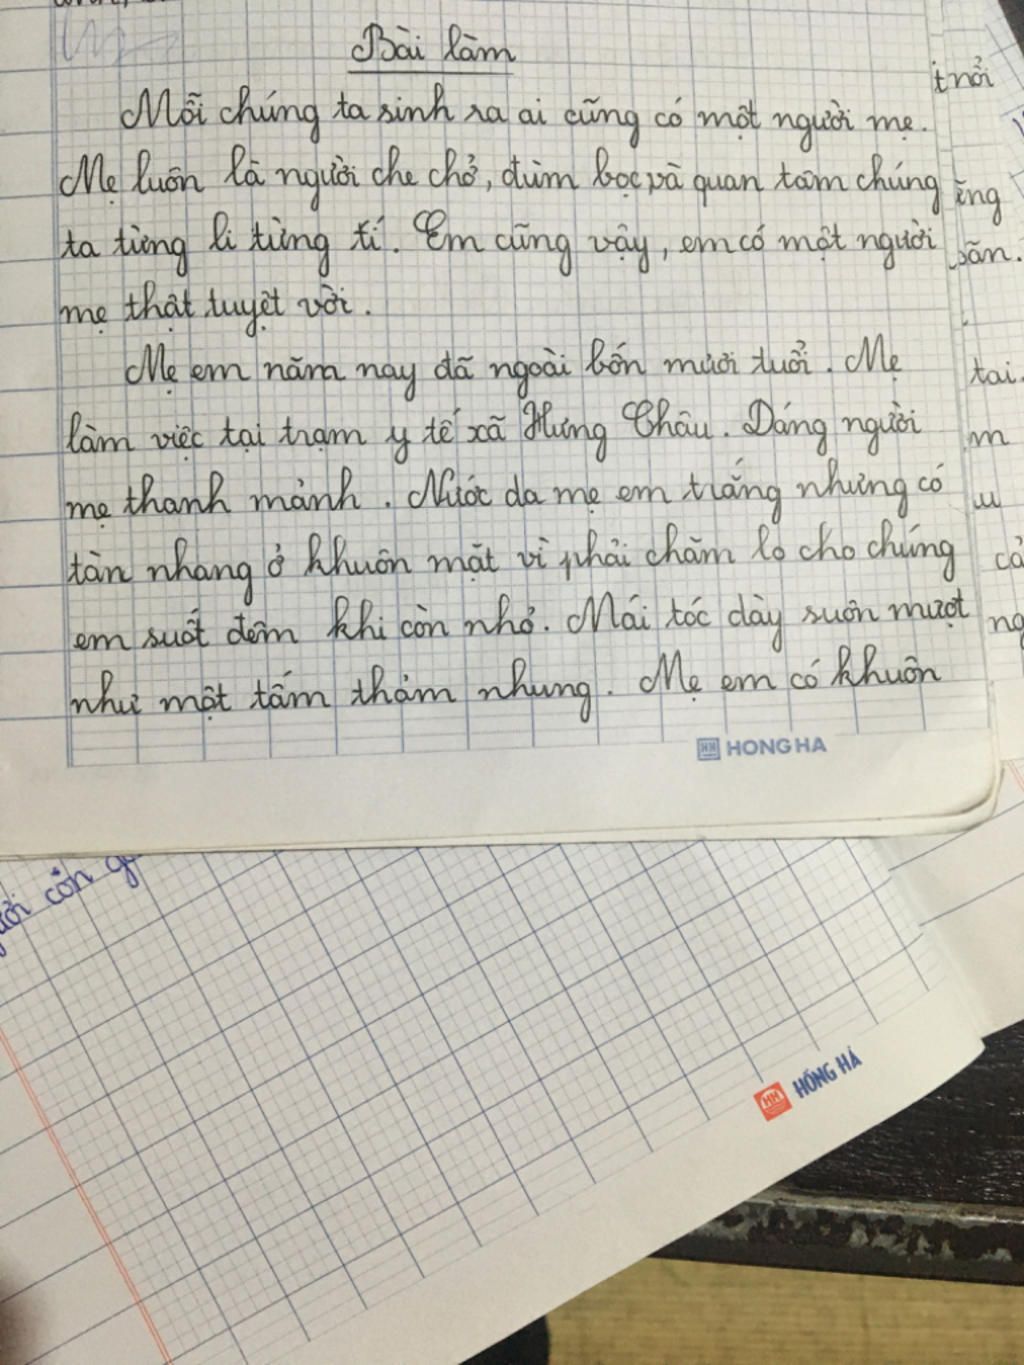 Bài làm
Mỗi chúng ta sinh ra ai cũng có một người mẹ.
Mẹ luôn là người che chở, đùm bọc và quan tâm chúng
ta từng li từng tí. Em cũng vậy, em có một người
mẹ thật tuyệt vời.
Mẹ em năm nay đã ngoài bốn mươi tuổi. Mẹ
làm việc tại trạm y tế xã Hưng Châu. Dáng người
mẹ thanh mảnh. Nước da mẹ em trắng nhưng có
tàn nhang ở khuôn mặt vì phải chăm lo cho chúng
em suốt đêm khi còn nhỏ. Mái tóc dày suôn mượt
như một tấm thảm nhung. Mẹ em có khuôn
HONG HA
trổi
tai.
còn
HỒNG HÀ